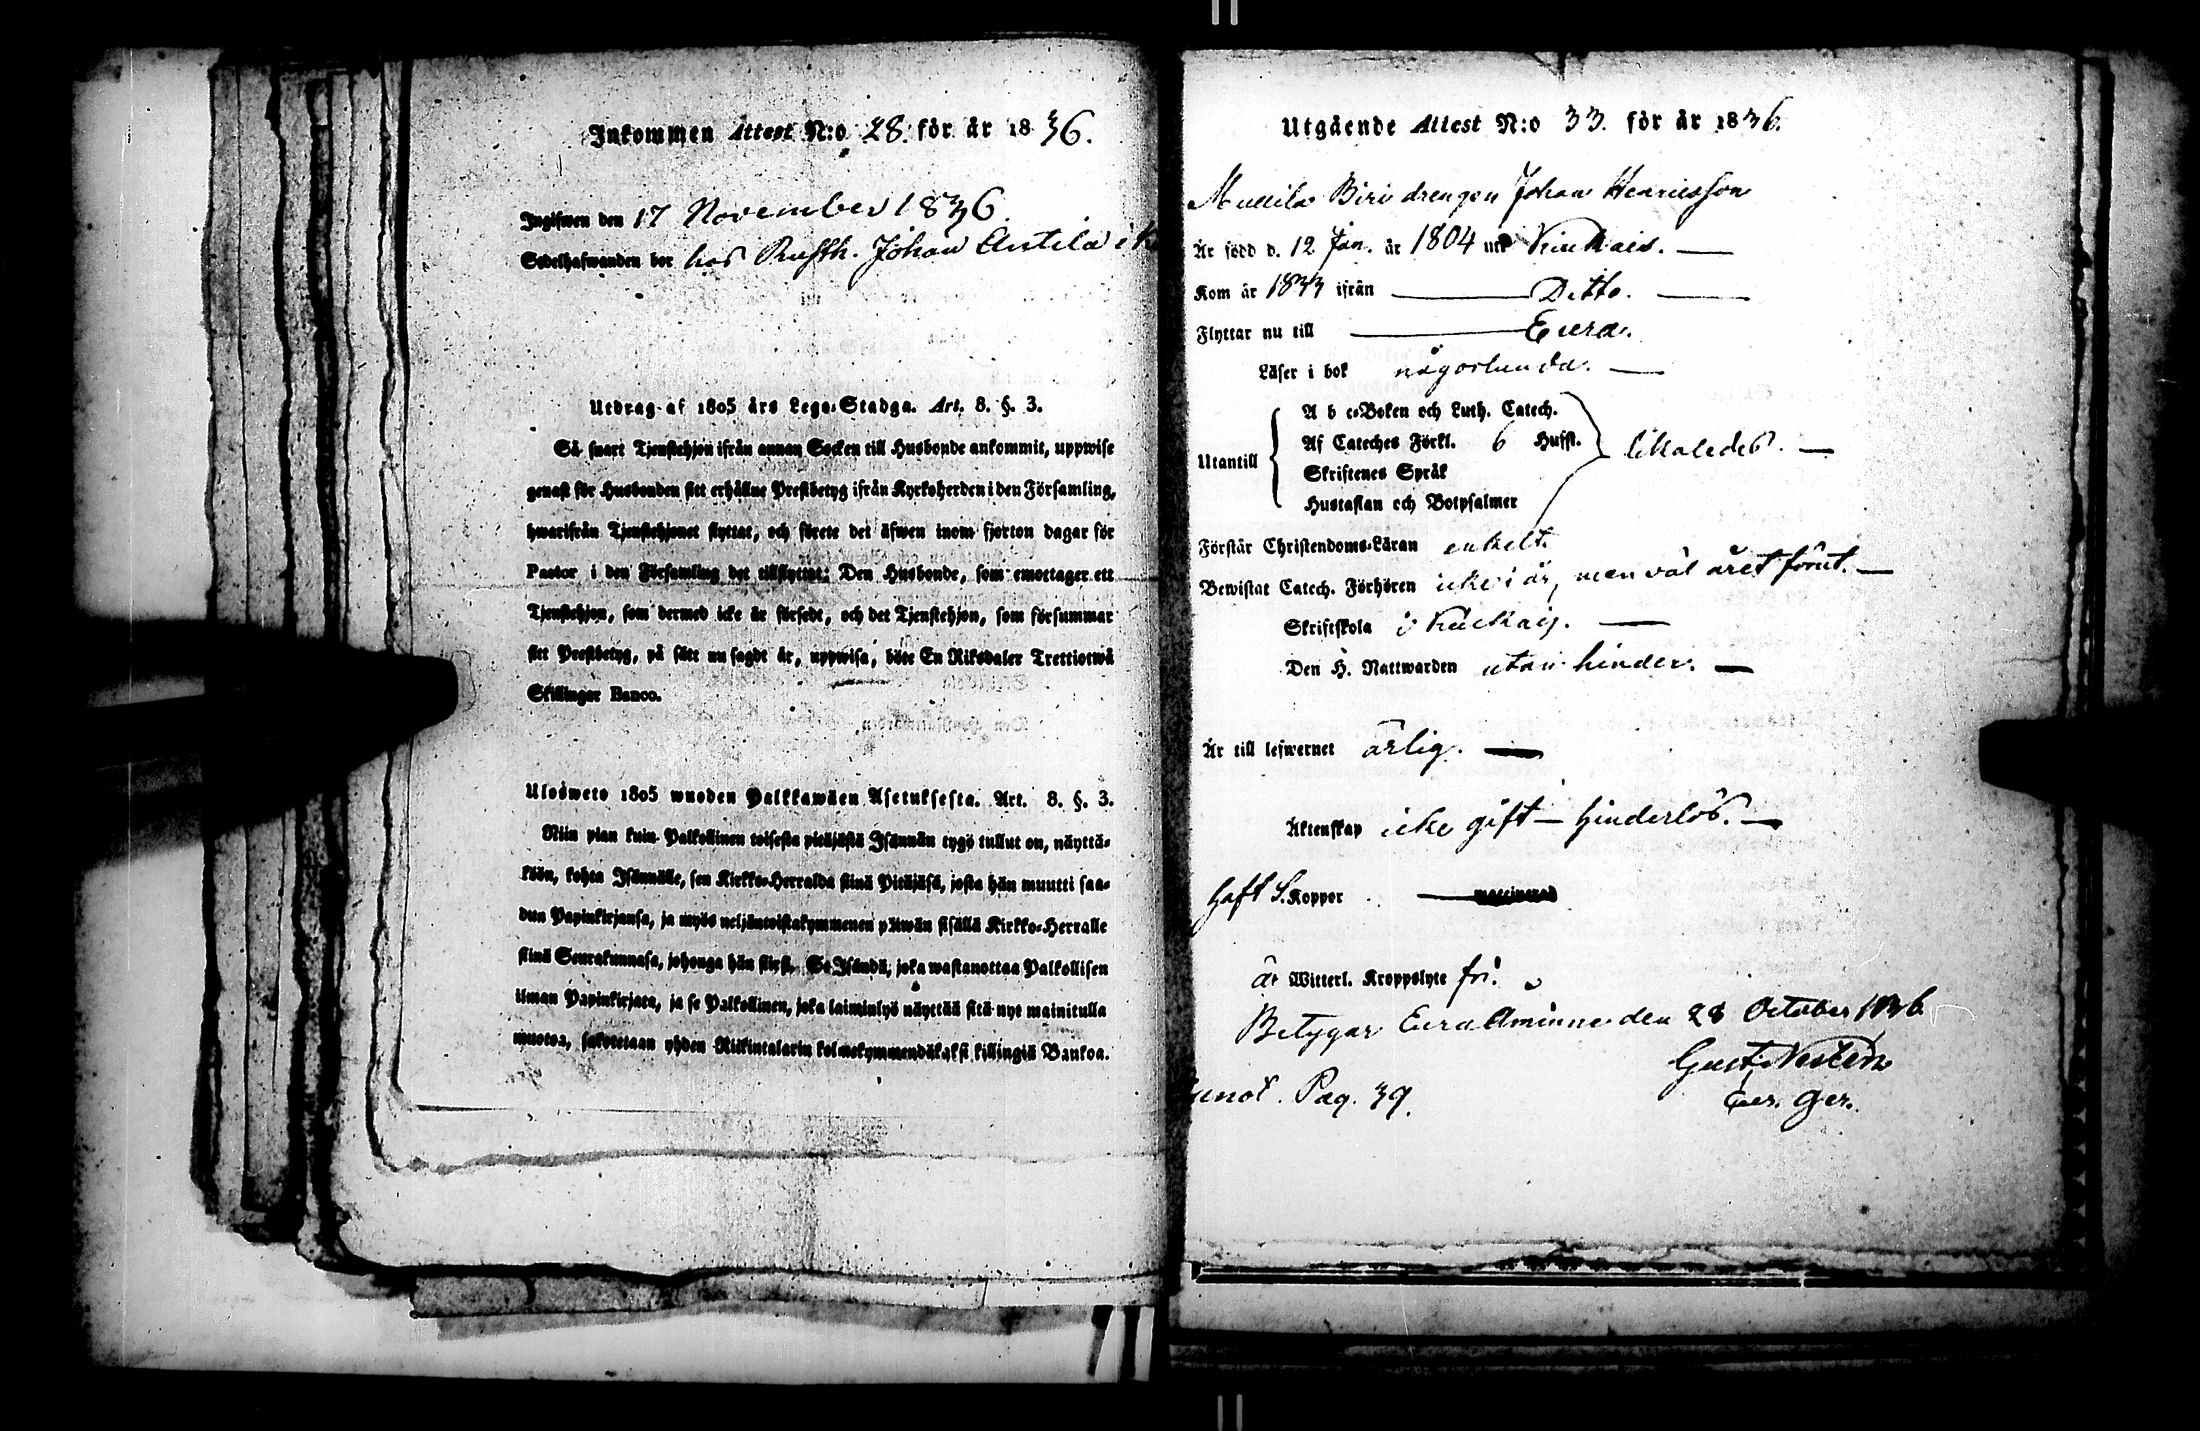 Inkommen Attest N:o 28. för år 1836.
Ingifwen den 17 November 1836.
Sedelhafwanden bor hos Rusth. Johan Anttila i
Utdrag af 1805 års Lego-Stadga. Art. 8. §. 3.
Så snart Tjenstehjon ifrån annan Socken till Husbonde ankommit, uppwise
genast för Husbonden sitt erhållne Prestbetyg ifrån Kyrkoherden i den Församling,
hwarifrån Tjenstehjonet flyttat, och förete det äfwen inom fjorton dagar för
Pastor i den Församling det tillflyttat: Den Husbonde, som emottager ett
Tjenstehjon, som dermed icke är försedt, och det Tjenstehjon, som försummar
sitt Prestbetyg, på sätt nu sagdt är, uppwisa, böte En Riksdaler Trettiotwå
Skillinger Banco.
Ulosweto 1805 wuoden Palkkawäen Asetuksesta. Art. 8. §. 3.
Niin pian kuin Palkollinen toisesta pitäjästä Isännän tygö tullut on, näyttä-
köön, kohta Isännälle, sen Kirkko-Herralda siinä Pitäjäsä, josta hän muutti saa-
dun Papinkirjansa, ja myös neljäntoistakymmenen päiwän sisällä Kirkko-Herralle
siinä Seurakunnasa, johonga hän siirsi. Se Isändä, joka wastanottaa Palkollisen
ilman Papinkirjata, ja se Palkollinen, joka laiminlyö näyttää sitä nyt mainitulla
muotoa, sakotettaan yhden Riikintalarin kolmekymmendäkaksi killingiä Bankoa.
Utgående Attest N:o 33. för år 1836.
Mullila Biri drengen Johan Henricsson
Är född d. 12 Jan. år 1804 uti Kiukais.
Kom år 1833 ifrån Ditto.
Flyttar nu till Eura.
Läser i bok någorlunda.
A b c-Boken och Luth. Catech.
Af Cateches Förkl. 6 Hufst.
Utantill likaledes.
Skriftenes Språk
Hustaflan och Botpsalmer
Förstår Christendoms-Läran enkelt.
Bewistat Catech. Förhören icke i år, men väl året förut.
Skriftskola i Kiukais.
Den H. Nattwarden utan hinder.
Är till lefwernet ärlig.
Äktenskap icke gift – hinderlös.
haft S. Koppor
är Witterl. Kroppslyte fri.
Betygar Eura Åminne den 28 October 1836
Gust. Nestén
Pag. 39.